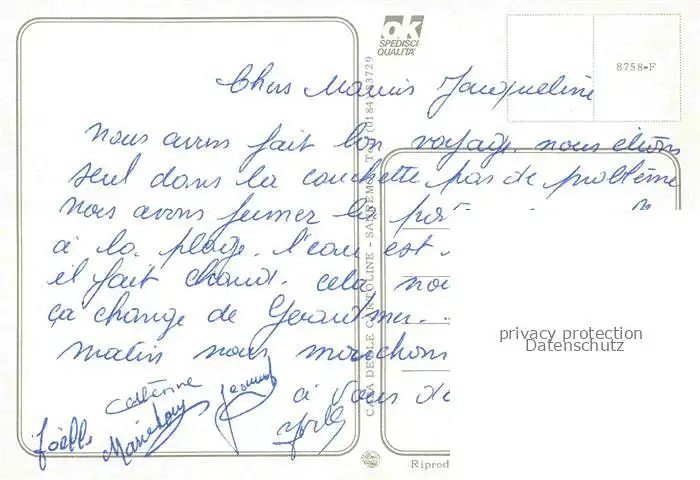 ok
SPEDISCI
QUALITÀ
8758•F
Chers Mamis Jacqueline
nous avons fait bon voyage. nous étions
seul dans la couchette pas de problème
nous avons fermer la
à la plage. l'eau est
il fait chaud. cela nou
ça change de Gerardmer.
matin nous marchons
à vous de
Joëlle
Catherine
CASA DELLE CARTOLINE - SANREMO - Tel. (0184)
Riprod
privacy protection
Datenschutz